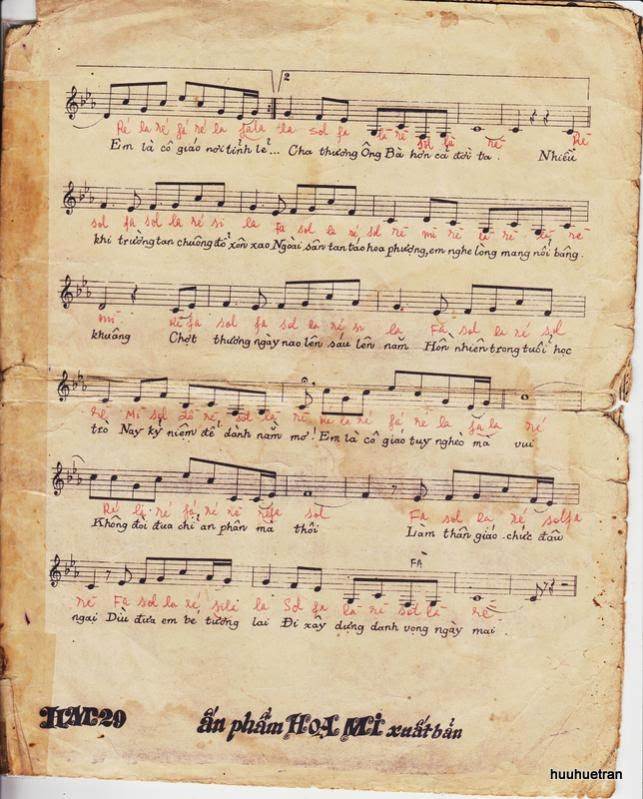 2
Ré la ré fá ré la fala la sol fa la rē sol la rē Rē
Em là cô giáo nơi tỉnh lẻ... Cha thương Ông Bà hơn cả đời ta. Nhiều
sol fa sol la ré si la Fa sol la ré sol rē mi rē la rē la rē
khi trường tan chuông đổ xôn xao Ngoài sân tan tác hoa phượng, em nghe lòng mang nỗi bâng.
mi Rē fa sol fa sol la ré si la Fa sol la ré sol
khuâng Chợt thương ngày nao lên sáu lên năm Hồn nhiên trong tuổi học
rē Mi sol rē sol la rē la ré fá ré la fa la ré
trò Nay kỷ niệm để dành nằm mơ! Em là cô giáo tuy nghèo mà vui
Ré ré fá ré rē rēfa sol Fa sol la ré solfa
Không đòi đua chỉ an phận mà thôi Làm thân giáo chức đâu
FÀ
rē Fa sol la ré sila la Sol fa la rē sol la rē
ngại Dìu đưa em bé tương lai Đi xây dựng danh vọng ngày mai.
HM29 ấn phẩm HOẠ MI xuất bản
huuhuetran